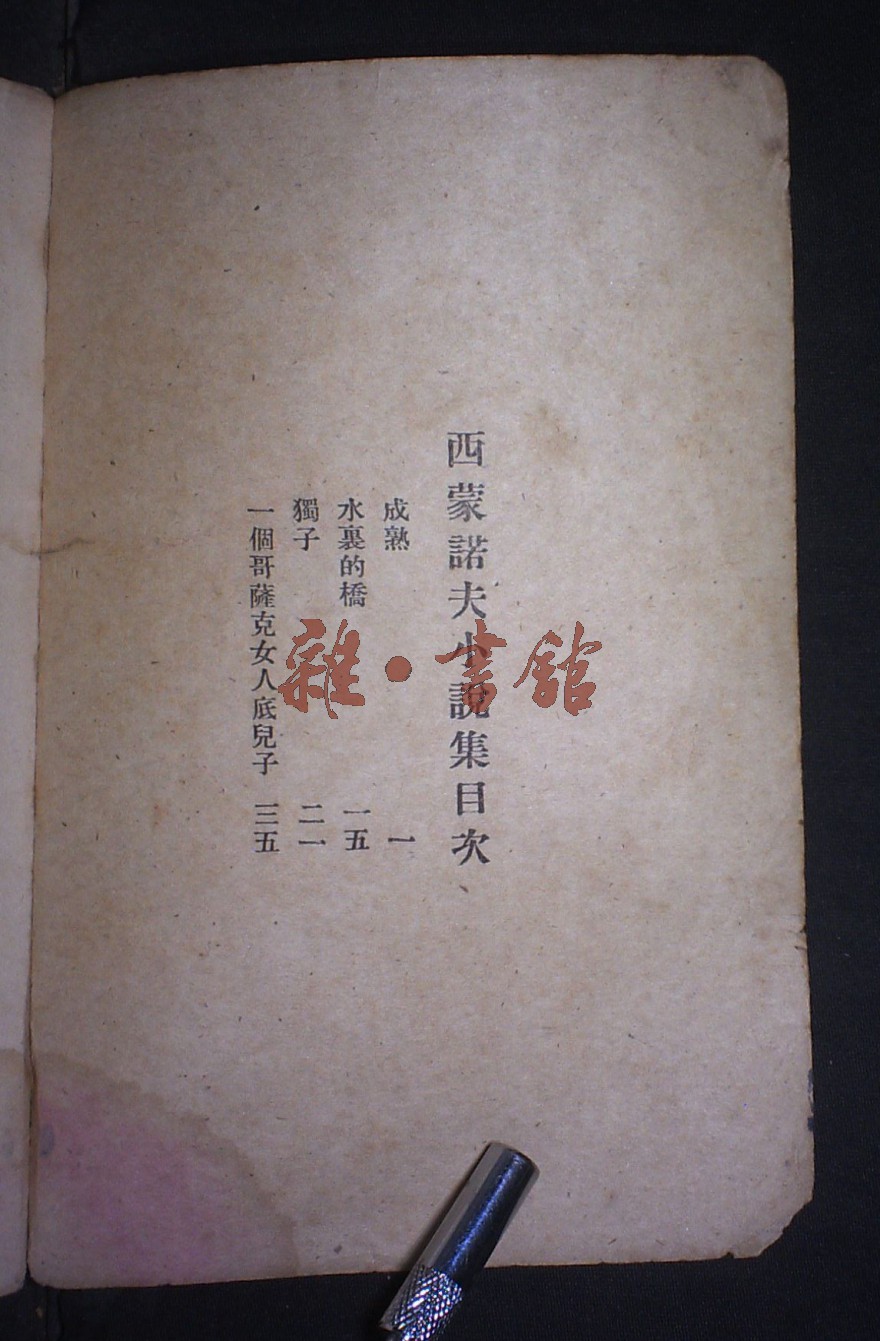 西蒙諾夫小說集目次
成熟 一
水裏的橋 一五
獨子 二一
一個哥薩克女人底兒子 三五
雜・書館